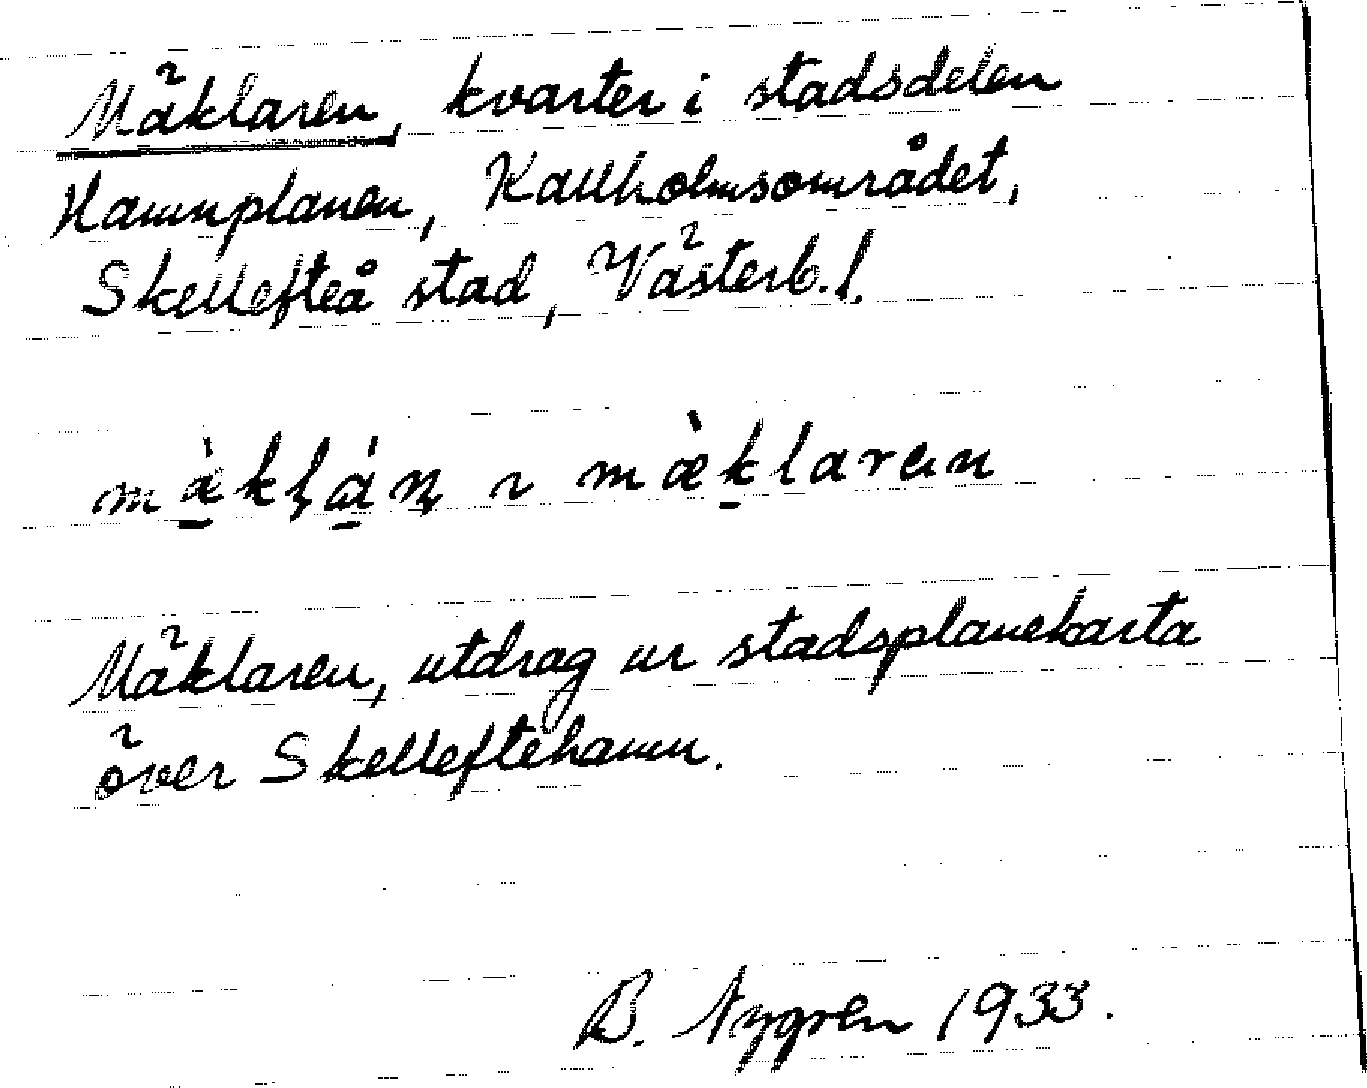 Mäklaren, kvarter i stadsdelen
Hamnplanen, Kallholmsområdet,
Skellefteå stad, Västerb.l.
mæ̀kļán̨ ~ mæ̀klaren
Mäklaren, utdrag ur stadsplanekarta
över Skelleftehamn.
B. Nygren 1933.